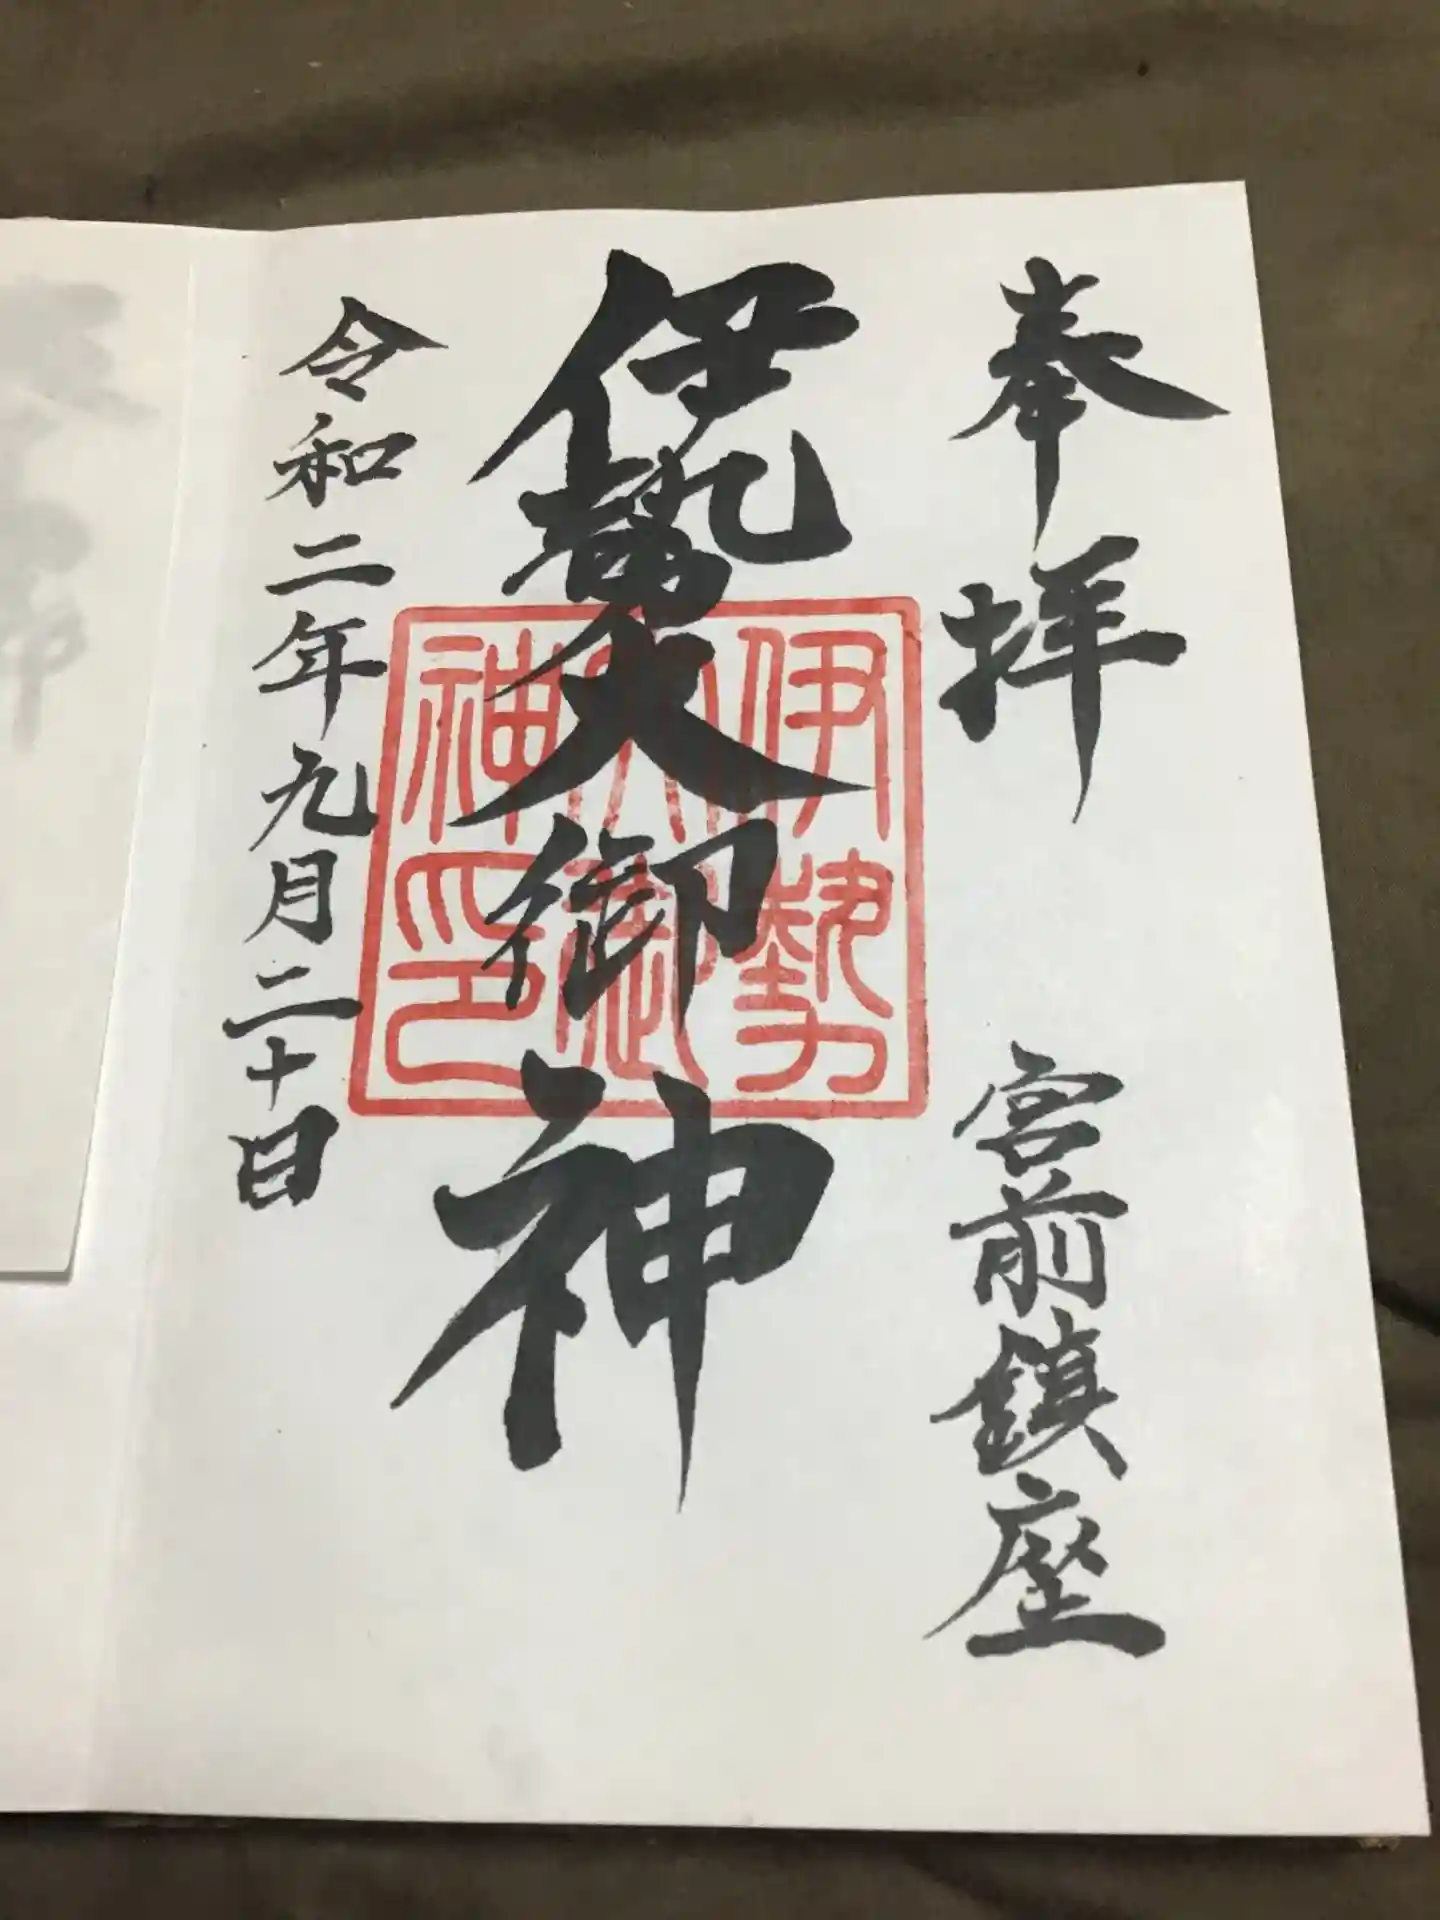 奉拝
宮前鎮座
伊勢大御神
伊勢
大御
神印
令和二年九月二十日